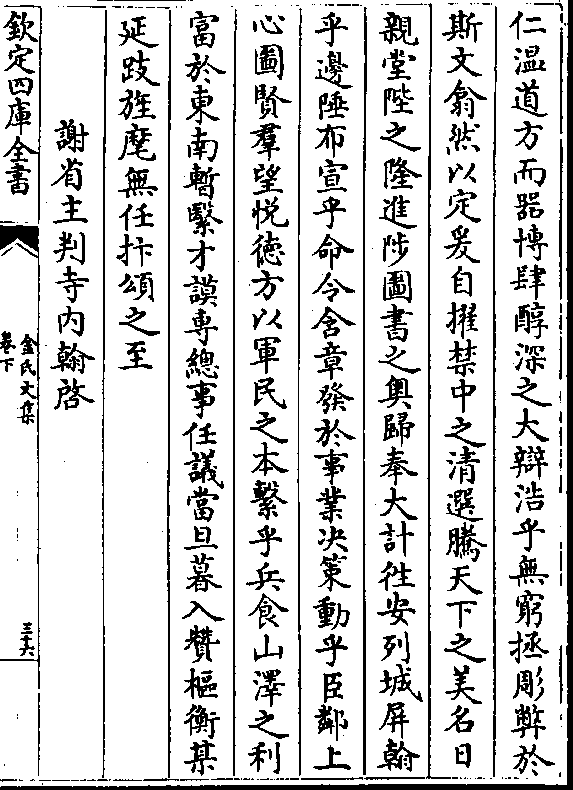 仁温道方而器博肆醇深之大辯浩乎無窮拯彫弊於
斯文翕然以定爰自擢禁中之清選騰天下之美名日
親堂陛之隆進陟圖書之奥歸奉大計徃安列城屏翰
乎邊陲布宣乎命令含章發於事業决策動乎臣鄰上
心圖賢羣望悦德方以軍民之本繫乎兵食山澤之利
富於東南暫緊才謨専總事任議當旦暮入贊樞衡某
延跂旌麾無任抃頌之至
謝省主判寺内翰啓
欽定四庫全書
金氏文集
卷下
三十六